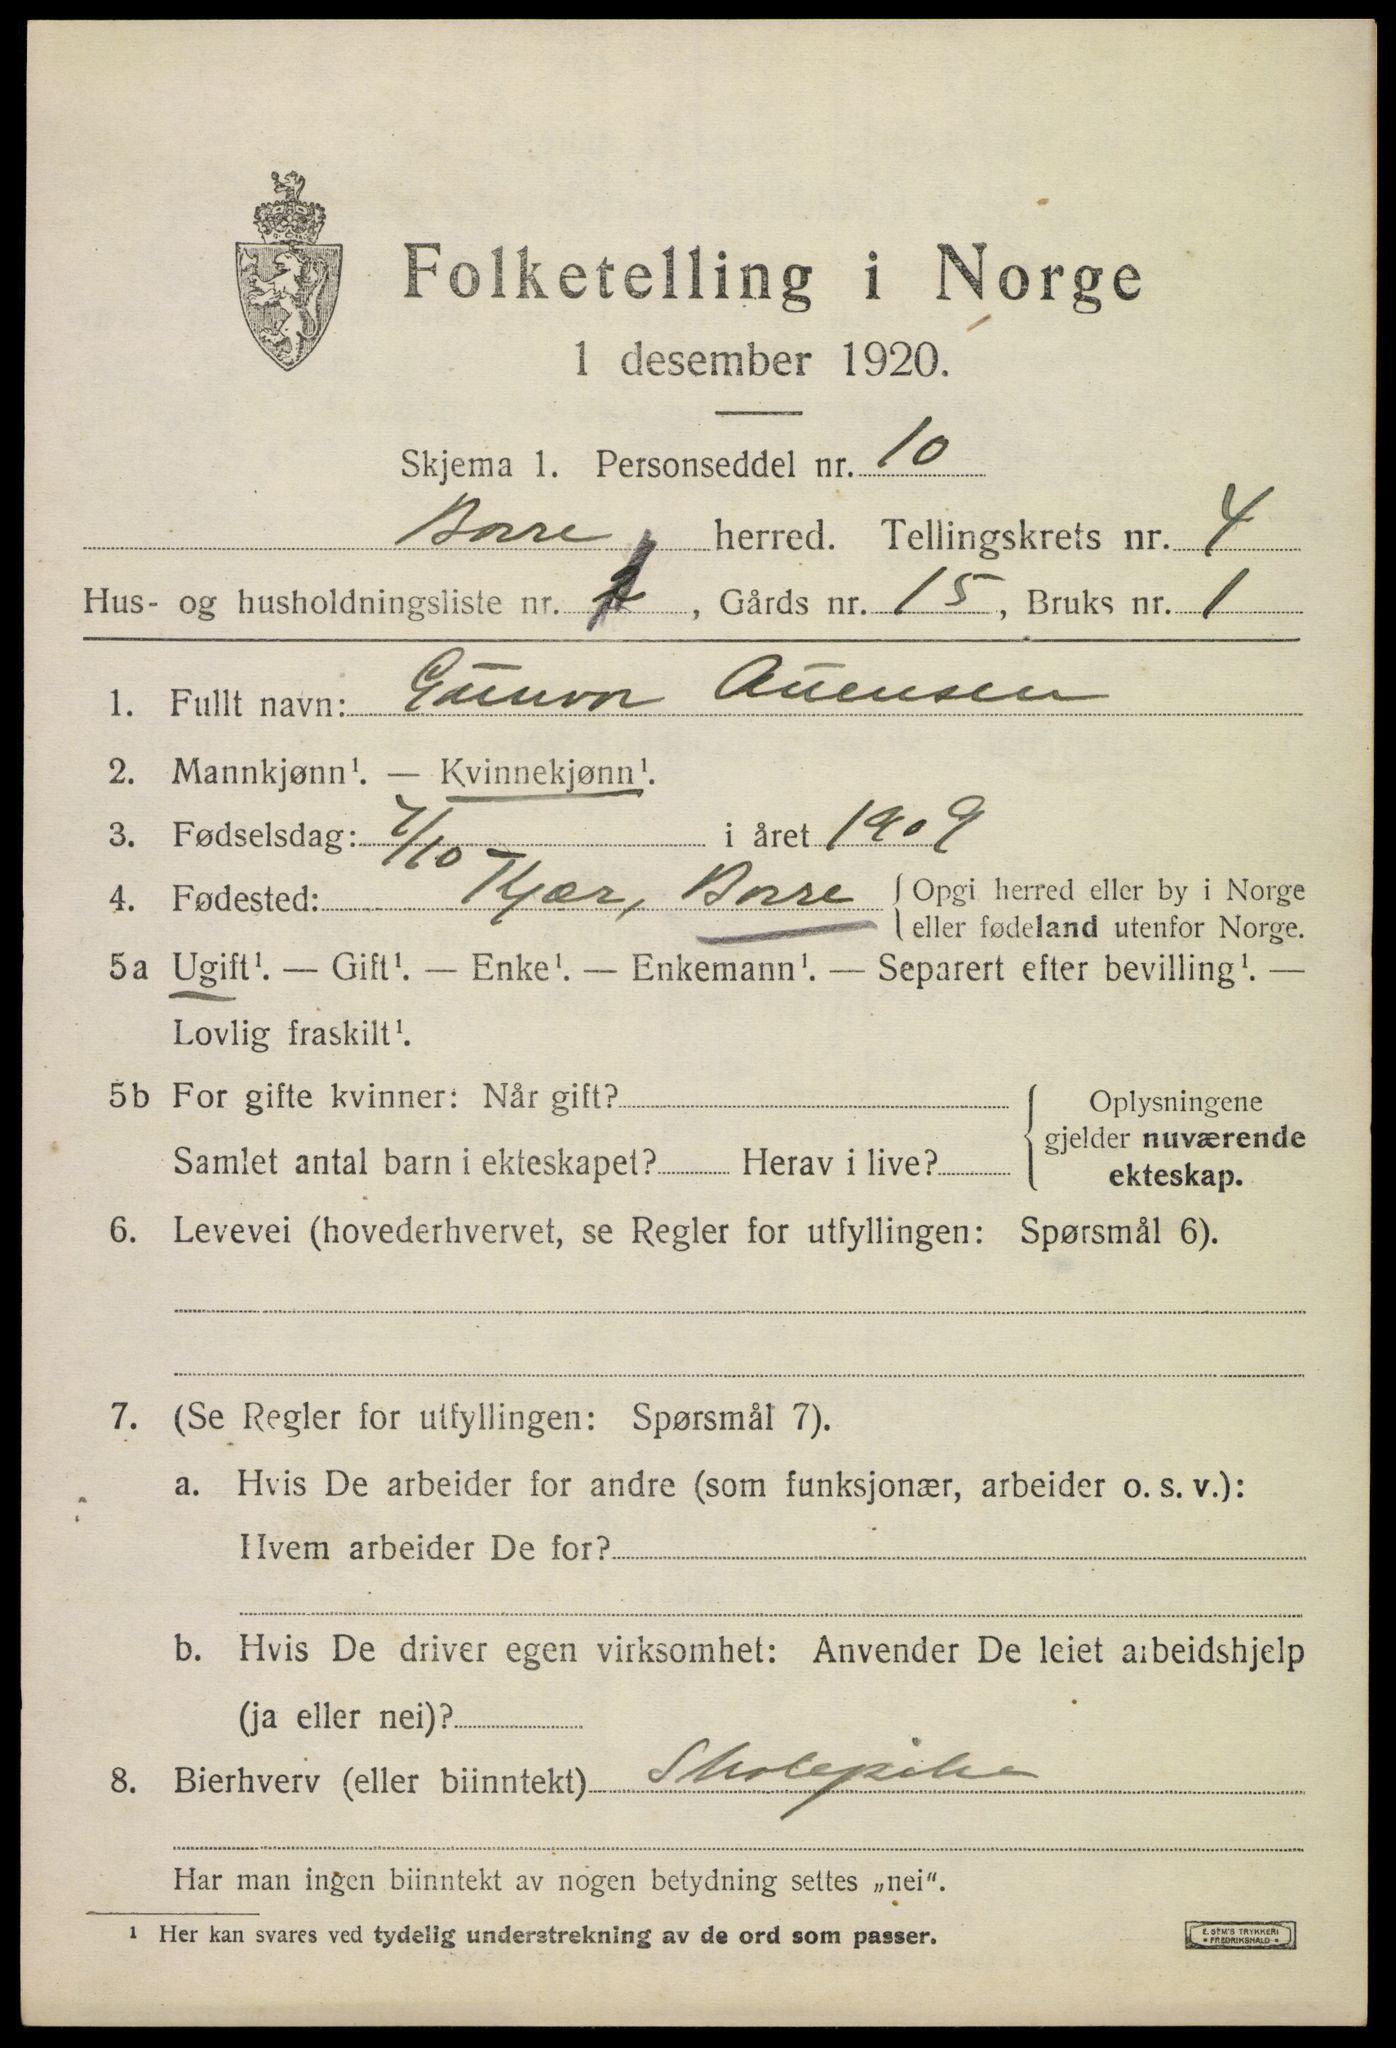 Folketelling i Norge
1 desember 1920.
Skjema 1. Personseddel nr. 10
Borre herred. Tellingskrets nr. 4
Hus- og husholdningsliste nr. , Gårds nr. 15, Bruks nr. 1
1. Fullt navn: Gunvor
2. Mannkjønn¹. — Kvinnekjønn¹.
3. Fødselsdag: 7/10 i året 1909
4. Fødested: Kjær, Borre { Opgi herred eller by i Norge
eller fødeland utenfor Norge.
5a Ugift¹. — Gift¹. — Enke¹. — Enkemann¹. — Separert efter bevilling¹. —
Lovlig fraskilt¹.
5b For gifte kvinner: Når gift? Oplysningene
gjelder nuværende
Samlet antal barn i ekteskapet? Herav i live? ekteskap.
6. Levevei (hovederhvervet, se Regler for utfyllingen: Spørsmål 6).
7. (Se Regler for utfyllingen: Spørsmål 7).
a. Hvis De arbeider for andre (som funksjonær, arbeider o. s. v.):
Hvem arbeider De for?
b. Hvis De driver egen virksomhet: Anvender De leiet arbeidshjelp
(ja eller nei)?
8. Bierhverv (eller biinntekt) Skolepike
Har man ingen biinntekt av nogen betydning settes „nei“.
¹ Her kan svares ved tydelig understrekning av de ord som passer.
E. SEM'S TRYKKERI
• FREDRIKSHALD •